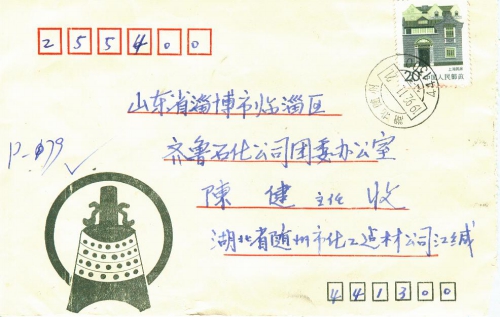 255400
20分
中国人民邮政
山东省淄博市临淄区
齐鲁石化公司团委办公室
陳健 主任 收
湖北省随州市化工建材公司江缄
441300